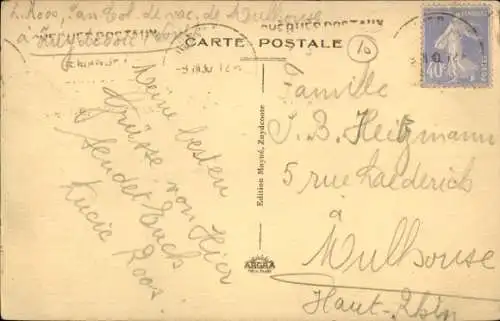 L. Roos, Col. de vac. de Mulhouse
à
CHÈQUES POSTAUX
CHÈQUES POSTAUX
CARTE POSTALE
10
40c
Meine besten
Grüsse von Hier
sendet Euch
Lucie Roos.
Edition Mayné, Zuydcoote
ARGRA
Famille
J. B. Heitzmann
5 rue Laederich
à
Mulhouse
Haut-Rhin